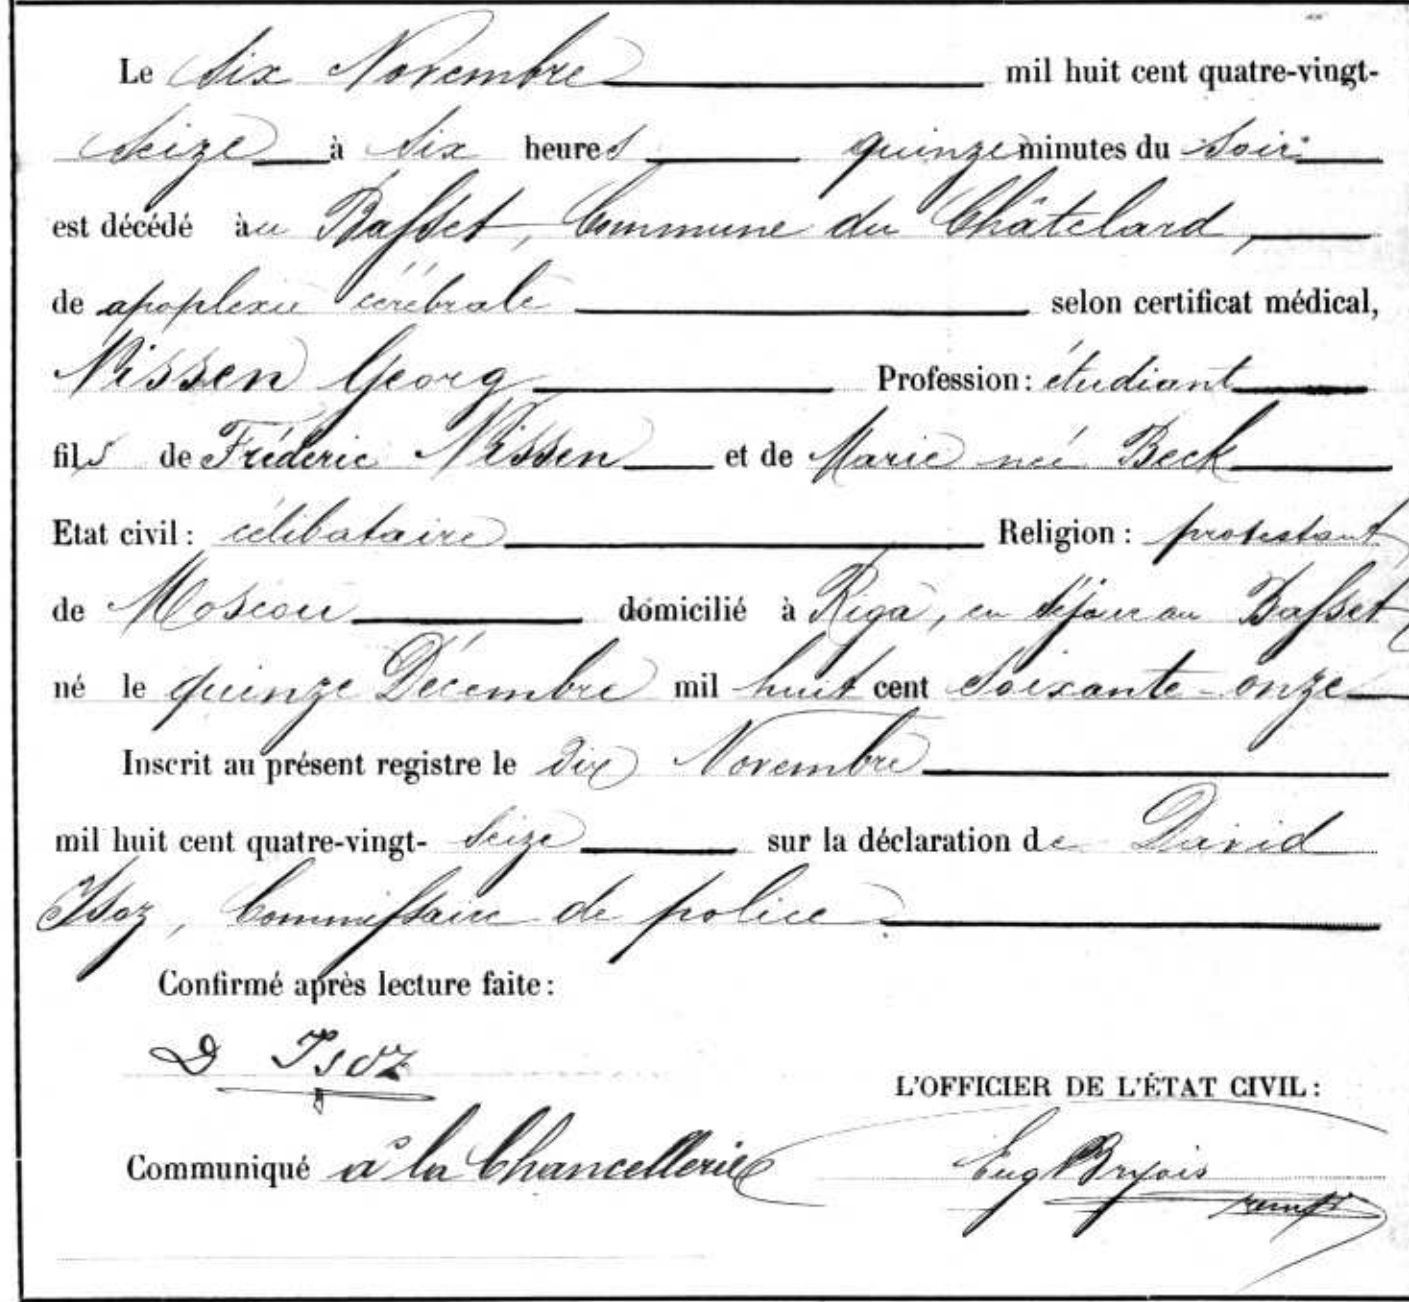 Le six Novembre mil huit cent quatre-vingt-
seize à six heures quinze minutes du soir
est décédé au Basset, Commune du Châtelard,
de apoplexie cérébrale selon certificat médical,
Nissen Georg Profession: étudiant
fils de Fréderic Nissen et de Marie née Beck
Etat civil: célibataire Religion: protestant
de Moscou domicilié à Riga, en séjour au Basset
né le quinze Décembre mil huit cent soixante-onze
Inscrit au présent registre le dix Novembre
mil huit cent quatre-vingt-seize sur la déclaration de David
Isoz, Commissaire de police.
Confirmé après lecture faite:
D Isoz
L'OFFICIER DE L'ÉTAT CIVIL:
Communiqué à la Chancellerie
Eug Bryois